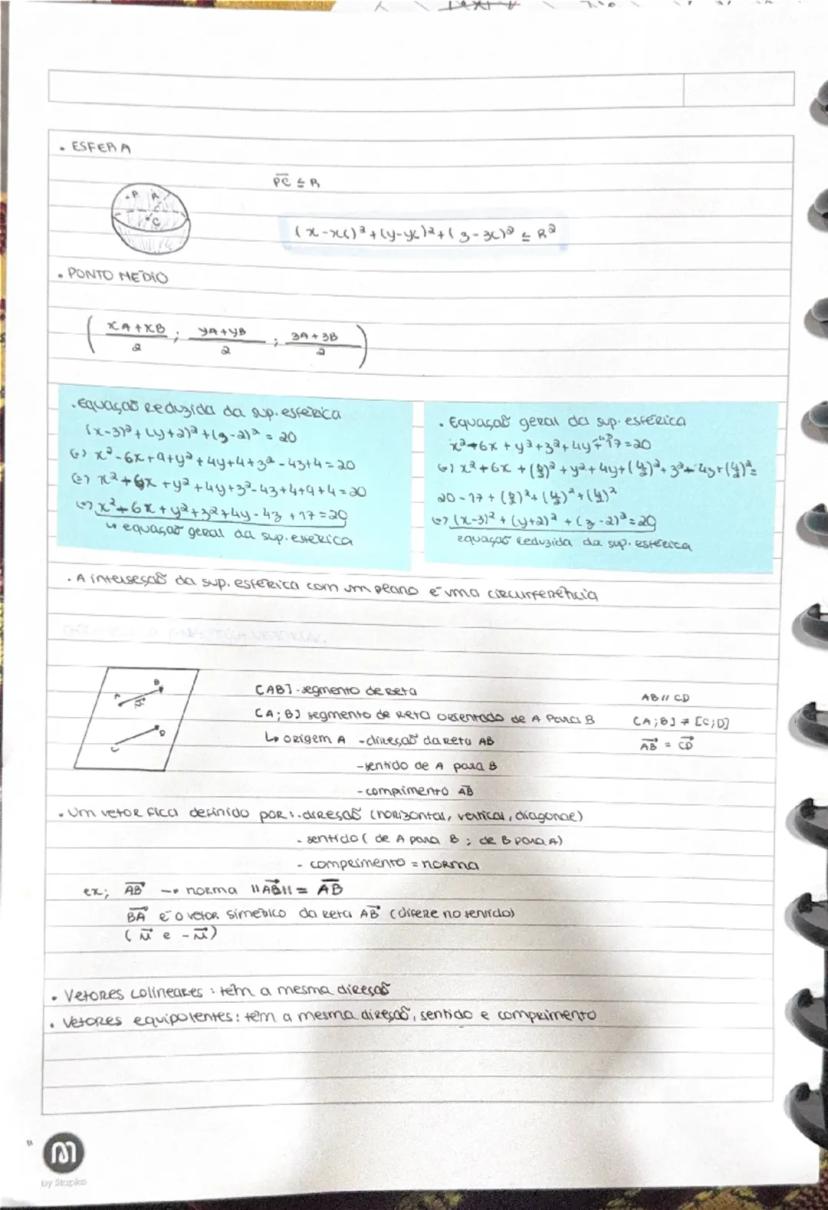 . ESFERA
P R
C
PC ≤ R
(x-xc)²+(y-yc)²+(z-zc)² ≤ R²
. PONTO MÉDIO
( xA+xB / 2 ; yA+yB / 2 ; zA+zB / 2 )
. Equação Reduzida da sup. esférica
(x-3)²+(y+2)²+(z-2)² = 20
(=) x²-6x+9+y²+4y+4+z²-4z+4=20
(=) x²+6x+y²+4y+z²-4z+4+9+4=20
(=) x²+6x+y²+z²+4y-4z+17=20
↳ equação geral da sup. esférica
. Equação geral da sup. esférica
20-17+(6/2)²+(4/2)²+(4/2)²
(=) (x-3)²+(y+2)²+(z-2)²=20
equação reduzida da sup. esférica
. A interseção da sup. esférica com um plano é uma circunferência
A B
C D
[AB] - segmento de reta
[A;B] segmento de reta orientado de A para B
↳ origem A - direção da reta AB
- sentido de A para B
- comprimento AB
AB // CD
[A;B] ≠ [C;D]
AB = CD
. Um vetor fica definido por: . direção (horizontal, vertical, diagonal)
- sentido ( de A para B ; de B para A)
- comprimento = norma
ex; AB → norma ||AB|| = AB
BA é o vetor simétrico da reta AB (difere no sentido)
( u e -u )
. Vetores colineares : têm a mesma direção
. Vetores equipolentes : têm a mesma direção, sentido e comprimento
by Staples